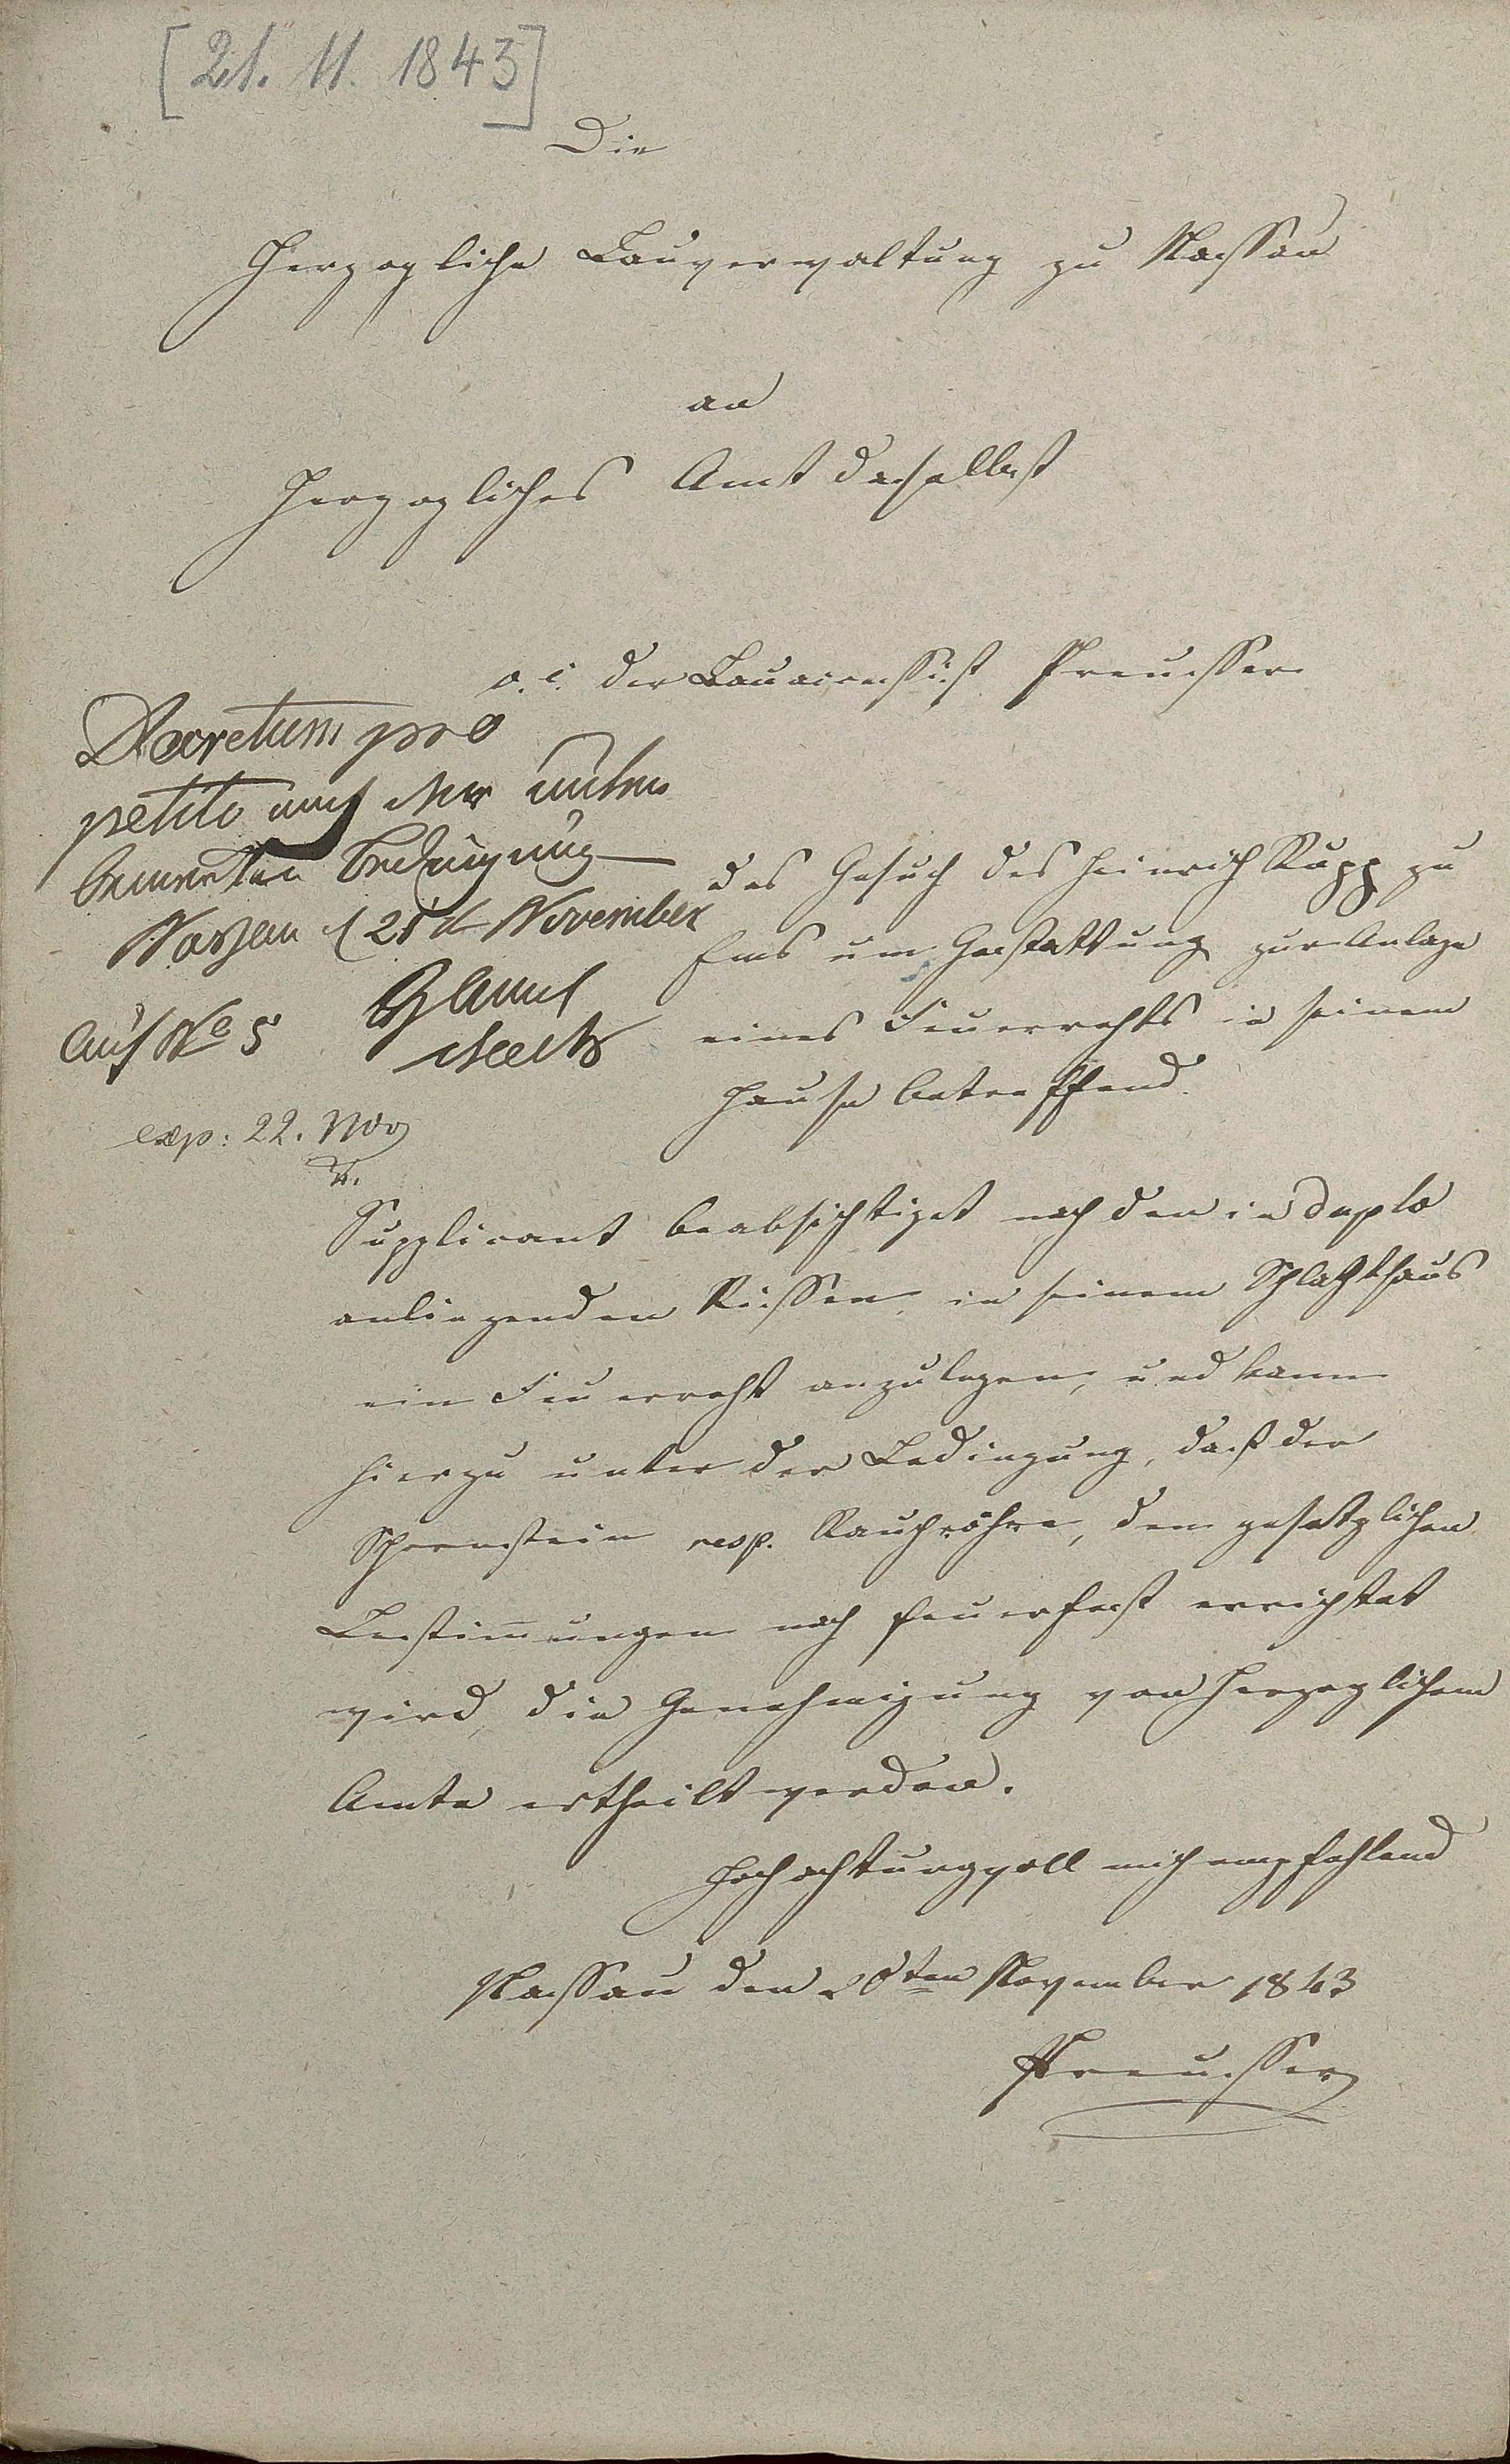 [21. 11. 1843]
Die
Herzogliche Bauverwaltung zu Nassau
an
Herzogliches Amt daselbst
o. i. der Bauaccessist Preusser
Decretum pro
petito nach der unten
bemerkten Bedingung
Nassau d 21 d November
HzAmt
Auf No 5
exp: 22. Nov
das Gesuch des Heinrich Rupp zu
Ems um Gestattung zur Anlage
eines Feuerrechts in seinem
Hause betreffend.
Supplicant beabsichtiget nach den in duplo
anliegenden Rissen, in seinem Schlachthaus
ein Feuerrecht anzulegen, und kann
hierzu unter der Bedingung, daß der
Schornstein resp. Rauchröhre, den gesetzlichen
Bestimungen nach feuerfest errichtet
wird, die Genehmigung von Herzoglichem
Amte ertheilt werden.
Hochachtungvoll mich empfehlend
Nassau den 20ten November 1843
Preusser